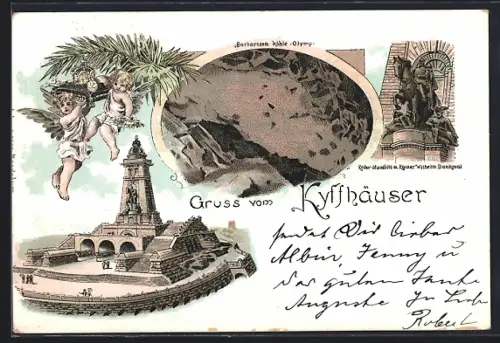 „Barbarossa Höhle-Olymp“
Reiter-Standbild a. Kaiser Wilhelm Denkmal
Gruss vom Kyffhäuser
sendet Dir lieber
Albin, Fenny u
der guten Tante
Auguste Ihr
Robert